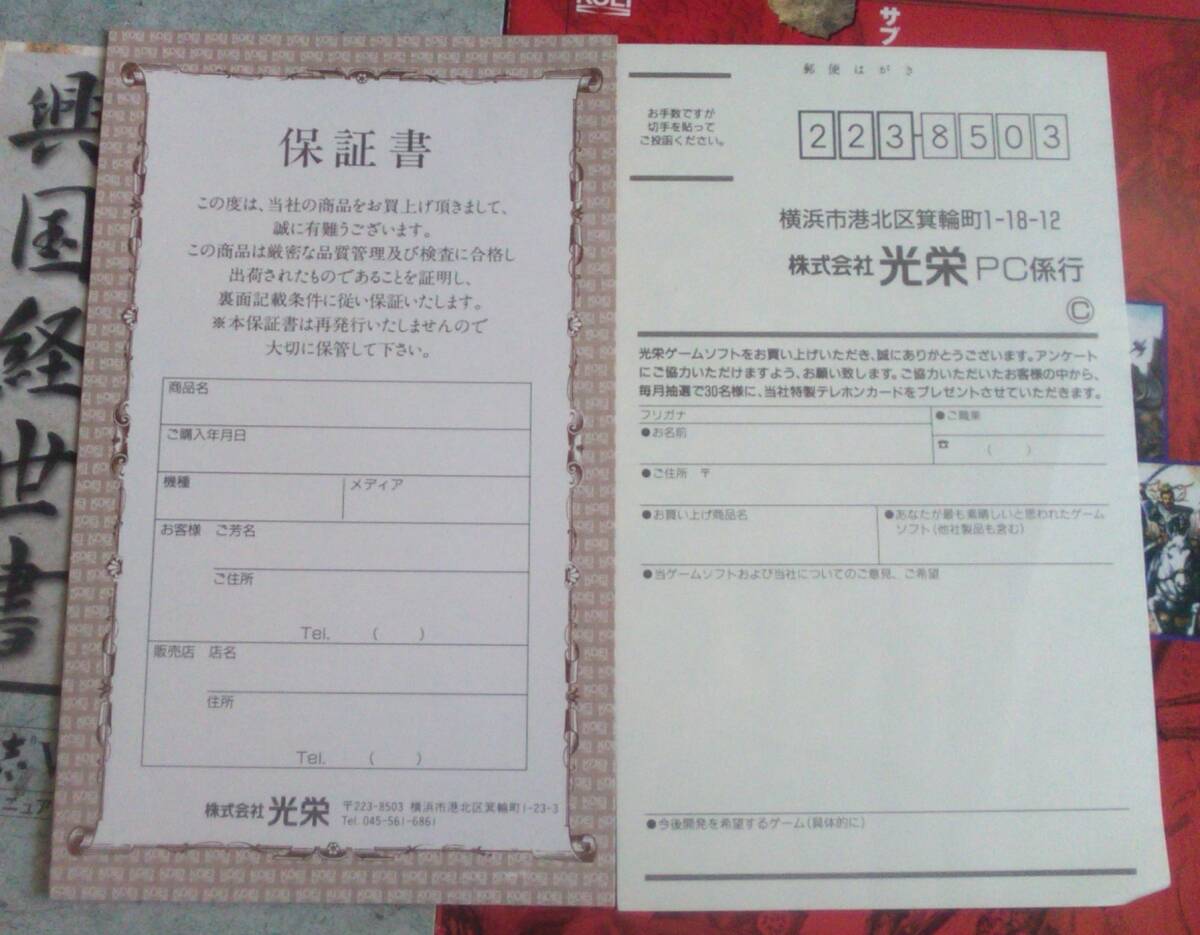 興国経世書
志V
ニュア
保証書
この度は、当社の商品をお買上げ頂きまして、
誠に有難うございます。
この商品は厳密な品質管理及び検査に合格し
出荷されたものであることを証明し、
裏面記載条件に従い保証いたします。
※本保証書は再発行いたしませんので
大切に保管して下さい。
商品名
ご購入年月日
機種
メディア
お客様 ご芳名
ご住所
Tel. ( )
販売店 店名
住所
Tel. ( )
株式会社 光栄
〒223-8503 横浜市港北区箕輪町1-23-3
Tel. 045-561-6861
KOEI
サブ
郵便はがき
お手数ですが
切手を貼って
ご投函ください。
223-8503
横浜市港北区箕輪町1-18-12
株式会社 光栄 PC係行
Ⓒ
光栄ゲームソフトをお買い上げいただき、誠にありがとうございます。アンケート
にご協力いただけますよう、お願い致します。ご協力いただいたお客様の中から、
毎月抽選で30名様に、当社特製テレホンカードをプレゼントさせていただきます。
フリガナ
●お名前
●ご職業
☎ ( )
●ご住所 〒
●お買い上げ商品名
●あなたが最も素晴しいと思われたゲーム
ソフト(他社製品も含む)
●当ゲームソフトおよび当社についてのご意見、ご希望
●今後開発を希望するゲーム(具体的に)